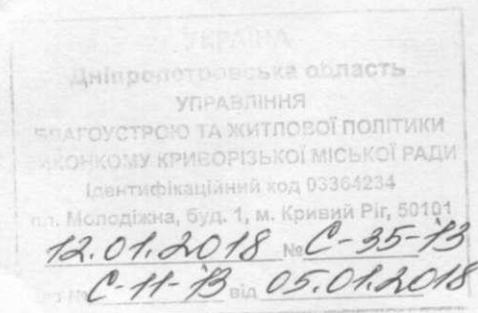 УКРАЇНА
Дніпропетровська область
УПРАВЛІННЯ
БЛАГОУСТРОЮ ТА ЖИТЛОВОЇ ПОЛІТИКИ
ВИКОНКОМУ КРИВОРІЗЬКОЇ МІСЬКОЇ РАДИ
Ідентифікаційний код 03364234
пл. Молодіжна, буд. 1, м. Кривий Ріг, 50101
12.01.2018 № С-35-13
С-11-13 від 05.01.2018